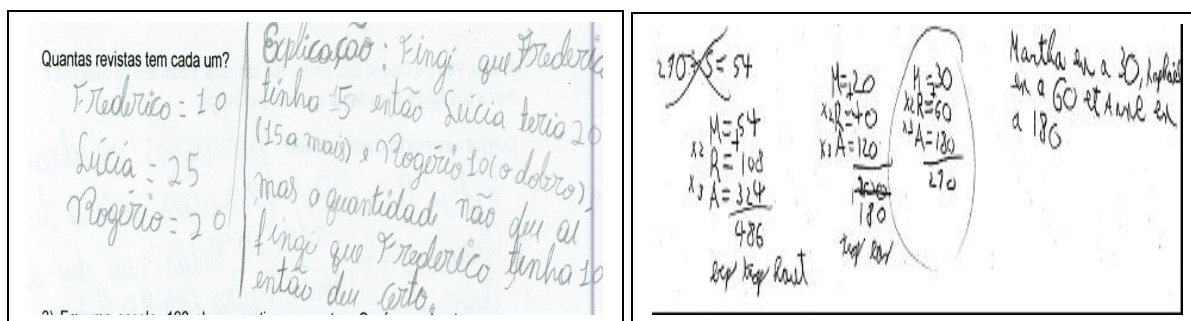 Quantas revistas tem cada um?
Frederico = 10
Lúcia = 25
Rogério = 20
Explicação: Fingi que Frederic
tinha 15 então Lúcia teria 20
(15 a mais) e Rogério 10 (o dobro)
mas a quantidade não deu aí
fingi que Frederico tinha 10
então deu certo.
270 ÷ 5 = 54
M = 54
x2 R = 108
x3 A = 324
486
trop haut
M = 20
x2 R = 40
x3 A = 120
180
trop bas
M = 30
x2 R = 60
x3 A = 180
270
Martha en a 30, Raphaël
en a 60 et Anne en
a 180